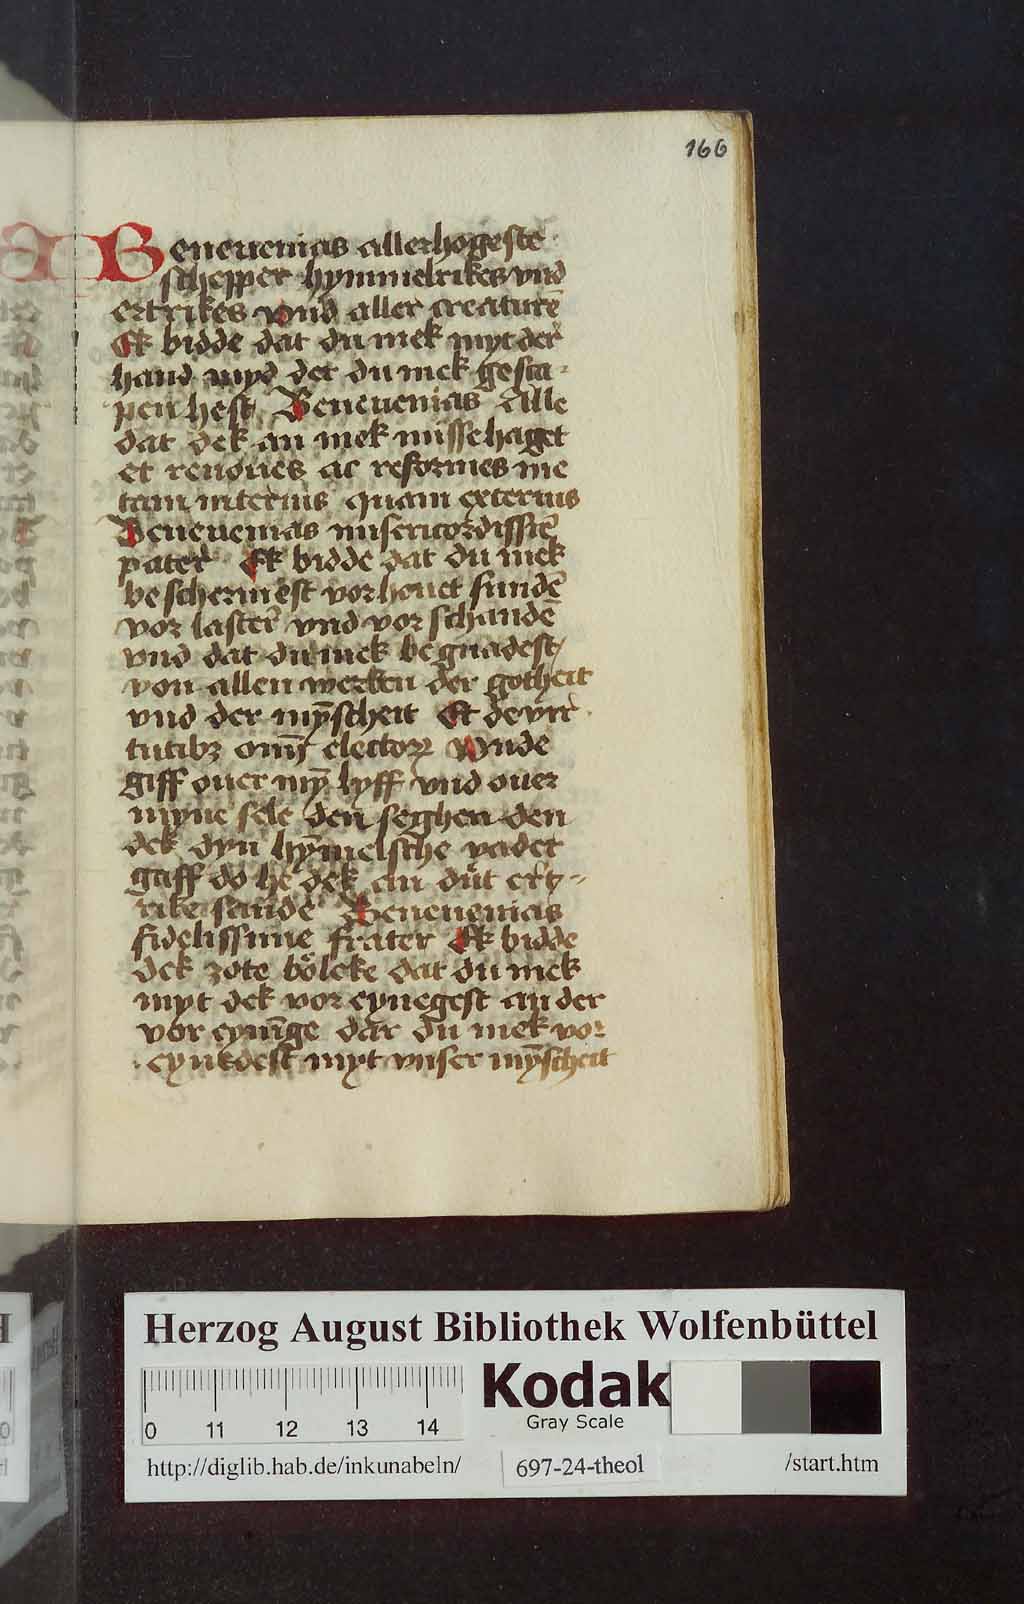 166
Beneuenias allerhogeste
schepper hymmelrikes vnd
ertrikes vnd aller creaturē
Ek bidde dat du mek myt der
hand myd der du mek gescha-
pen hest Beneuenias Alle
dat dek an mek missehaget
et renoues ac reformes me
tam internis quam externis
Beneuenias misericordissīe
pater Ek bidde dat du mek
beschermest vor houet sundē
vor laster vnd vor schandē
vnd dat du mek begnadest
von allen werken der gotheit
vnd der mȳscheit Et de vir
tutibꝫ omī electoꝝ Vnde
giff ouer mȳ lyff vnd ouer
myne sele den seghen den
dek dyn hȳmelsche vader
gaff do he dek an dut ert-
rike sande Beneuenias
fidelissime frater Ek bidde
dek zote bőleke dat du mek
myt dek vor eynegest an der
vor eynīge dar du mek vor
eynedest myt vnser mȳscheit
Herzog August Bibliothek Wolfenbüttel
0 11 12 13 14
Kodak
Gray Scale
http://diglib.hab.de/inkunabeln/
697-24-theol
/start.htm